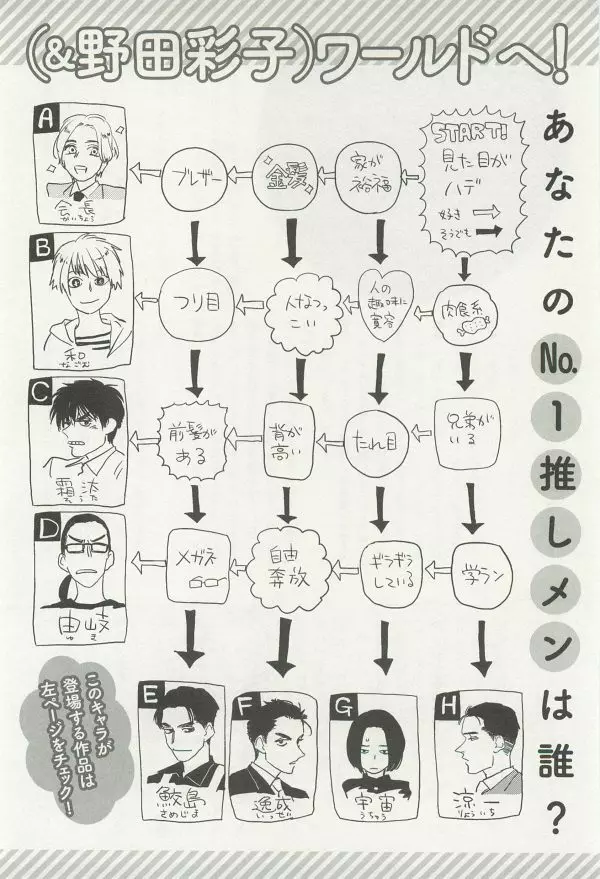 (&野田彩子)ワールドへ!
あなたのNo.1推しメンは誰?
START!
見た目が
ハデ
好き
そうでも
家が
裕福
金髪
ブレザー
A
会長
かいちょう
肉食系
人の
趣味に
寛容
人なつっ
こい
つり目
B
和
なごむ
兄弟が
いる
たれ目
背が
高い
前髪が
ある
C
霜汰
そうた
学ラン
ギラギラ
している
自由
奔放
メガネ
D
由岐
ゆき
E
鮫島
さめじま
F
逸成
いっせい
G
宇宙
うちゅう
H
涼一
りょういち
このキャラが
登場する作品は
左ページをチェック!